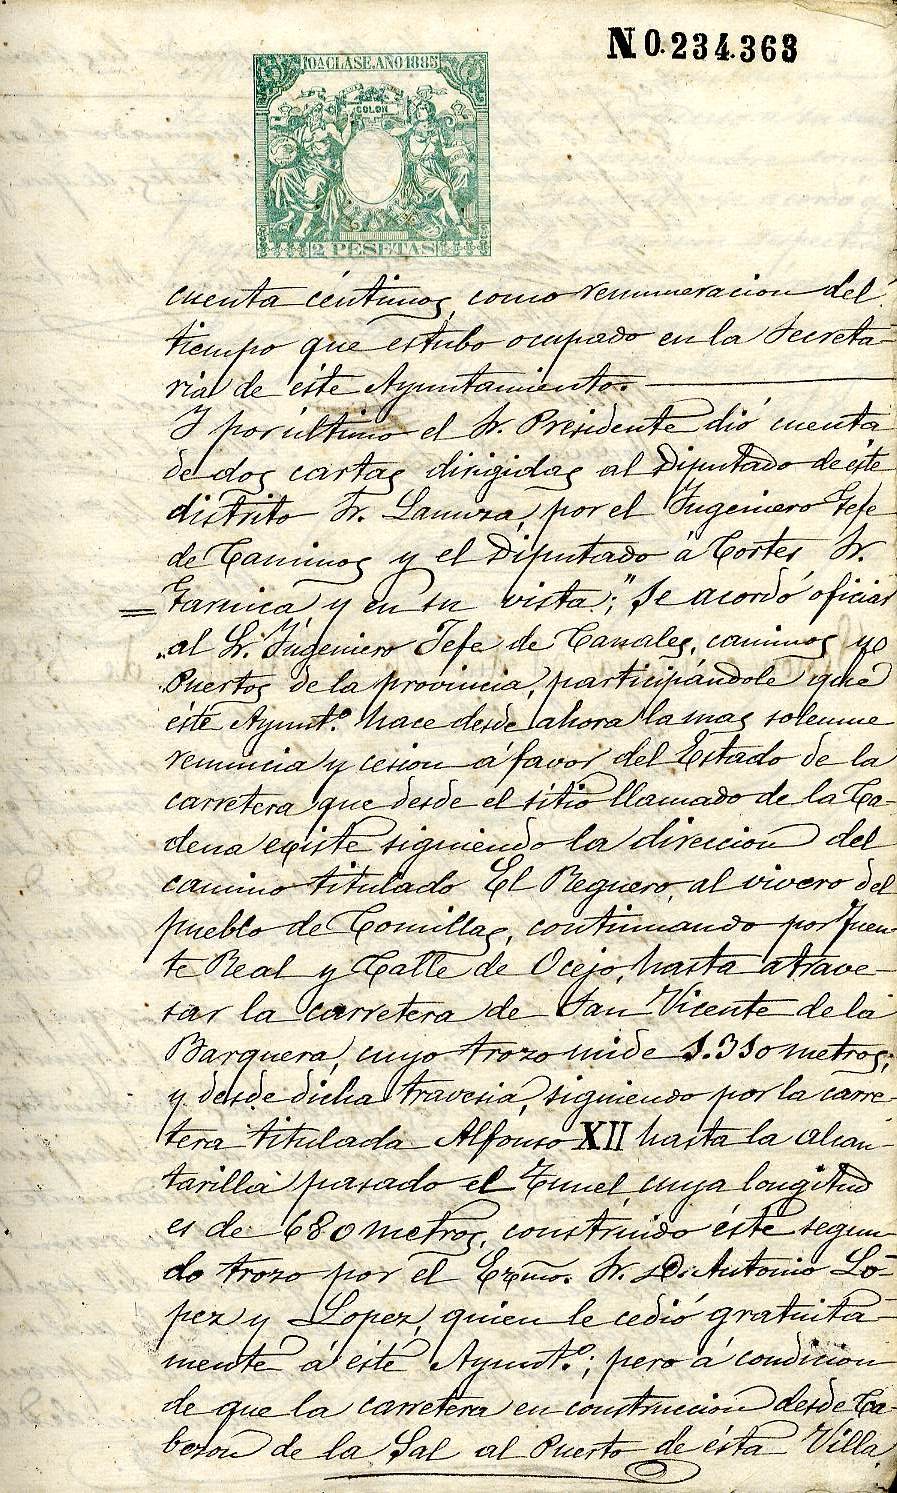 N 0.234.363
10ª CLASE. AÑO 1885
COLON
2 PESETAS
cuenta céntimos, como remuneracion del
tiempo que estubo ocupado en la Secreta-
ria de éste Ayuntamiento.
Y por último el Sr. Presidente dió cuenta
de dos cartas dirigidas al Diputado de éste
distrito Sr. Lanuza, por el Ingeniero Jefe
de Caminos y el Diputado á Cortes Sr.
Garnica y en su vista; "Se acordó oficiar
al Sr. Ingeniero Jefe de Canales, caminos y
Puertos de la provincia, participándole que
éste Ayuntº. hace desde ahora la mas solemne
renuncia y cesion á favor del Estado de la
carretera que desde el sitio llamado de la Ca-
dena existe siguiendo la direccion del
camino titulado El Reguero, al vivero del
pueblo de Comillas, continuando por Fuen-
te Real y Calle de Ocejo, hasta atrave-
sar la carretera de San Vicente de la
Barquera, cuyo trozo mide 1.310 metros;
y desde dicha travesia, siguiendo por la carre-
tera titulada Alfonso XII hasta la alcan-
tarilla pasado el Tunel, cuya longitud
es de 680 metros, construido éste segun-
do trozo por el Ezmo. Sr. D. Antonio Ló-
pez y Lopez, quien le cedió gratuita-
mente á éste Ayuntº.; pero á condicion
de que la carretera en construccion desde Ca-
bezon de la Sal al Puerto de ésta Villa,